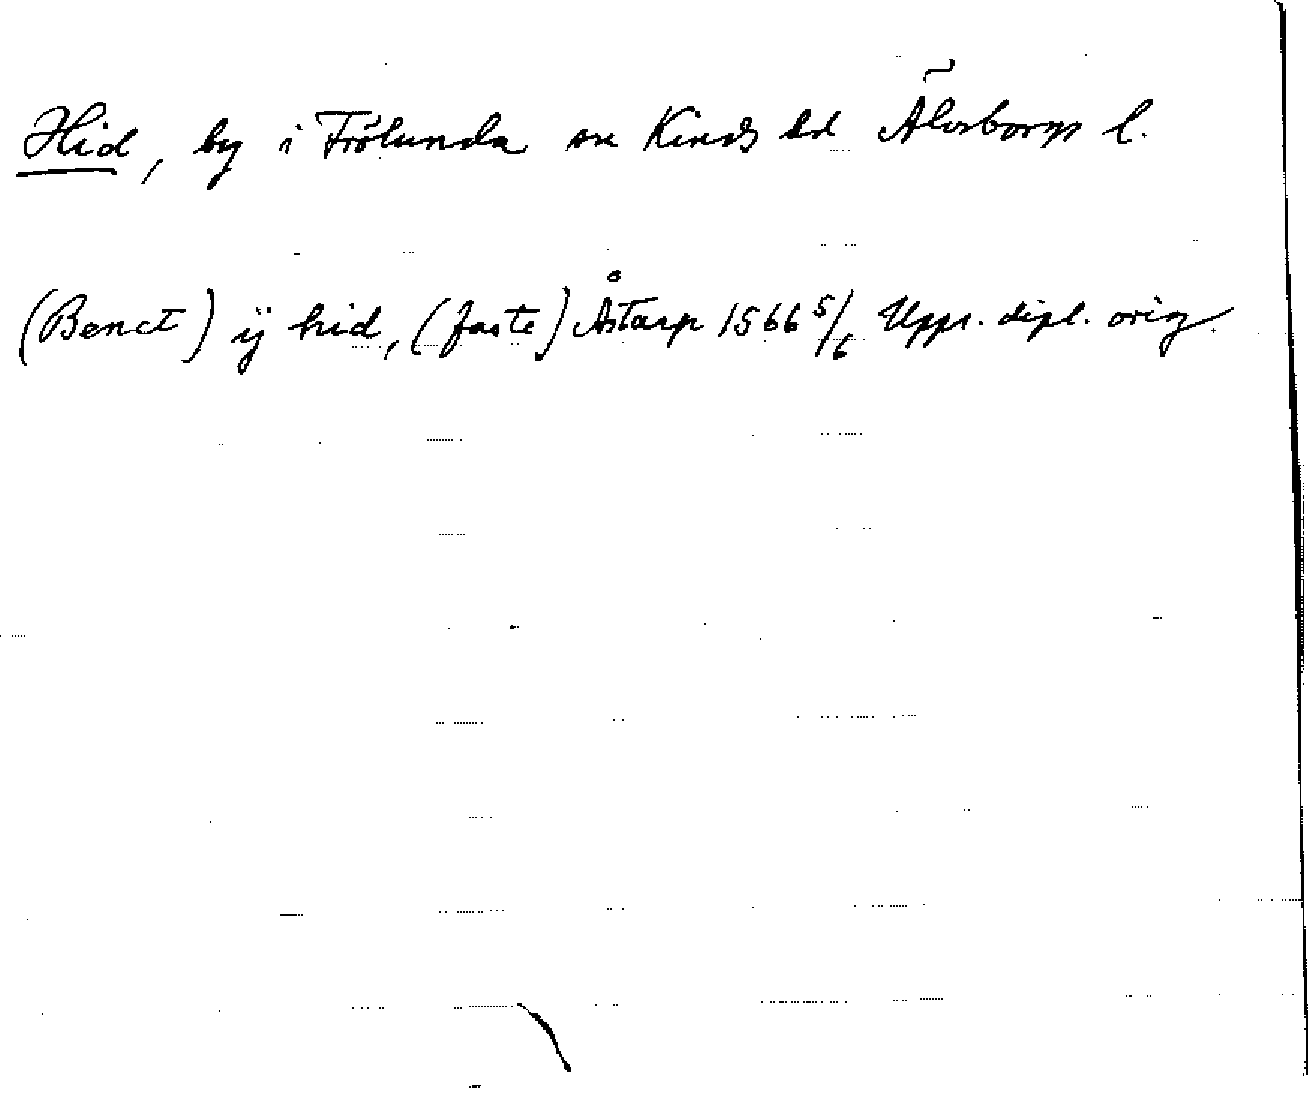 Hid, by i Frölunda sn Kinds hd Älvsborgs l.
(Benct) ÿ hid, (faste) Åstarp 1566 5/6 Upps. dipl. orig